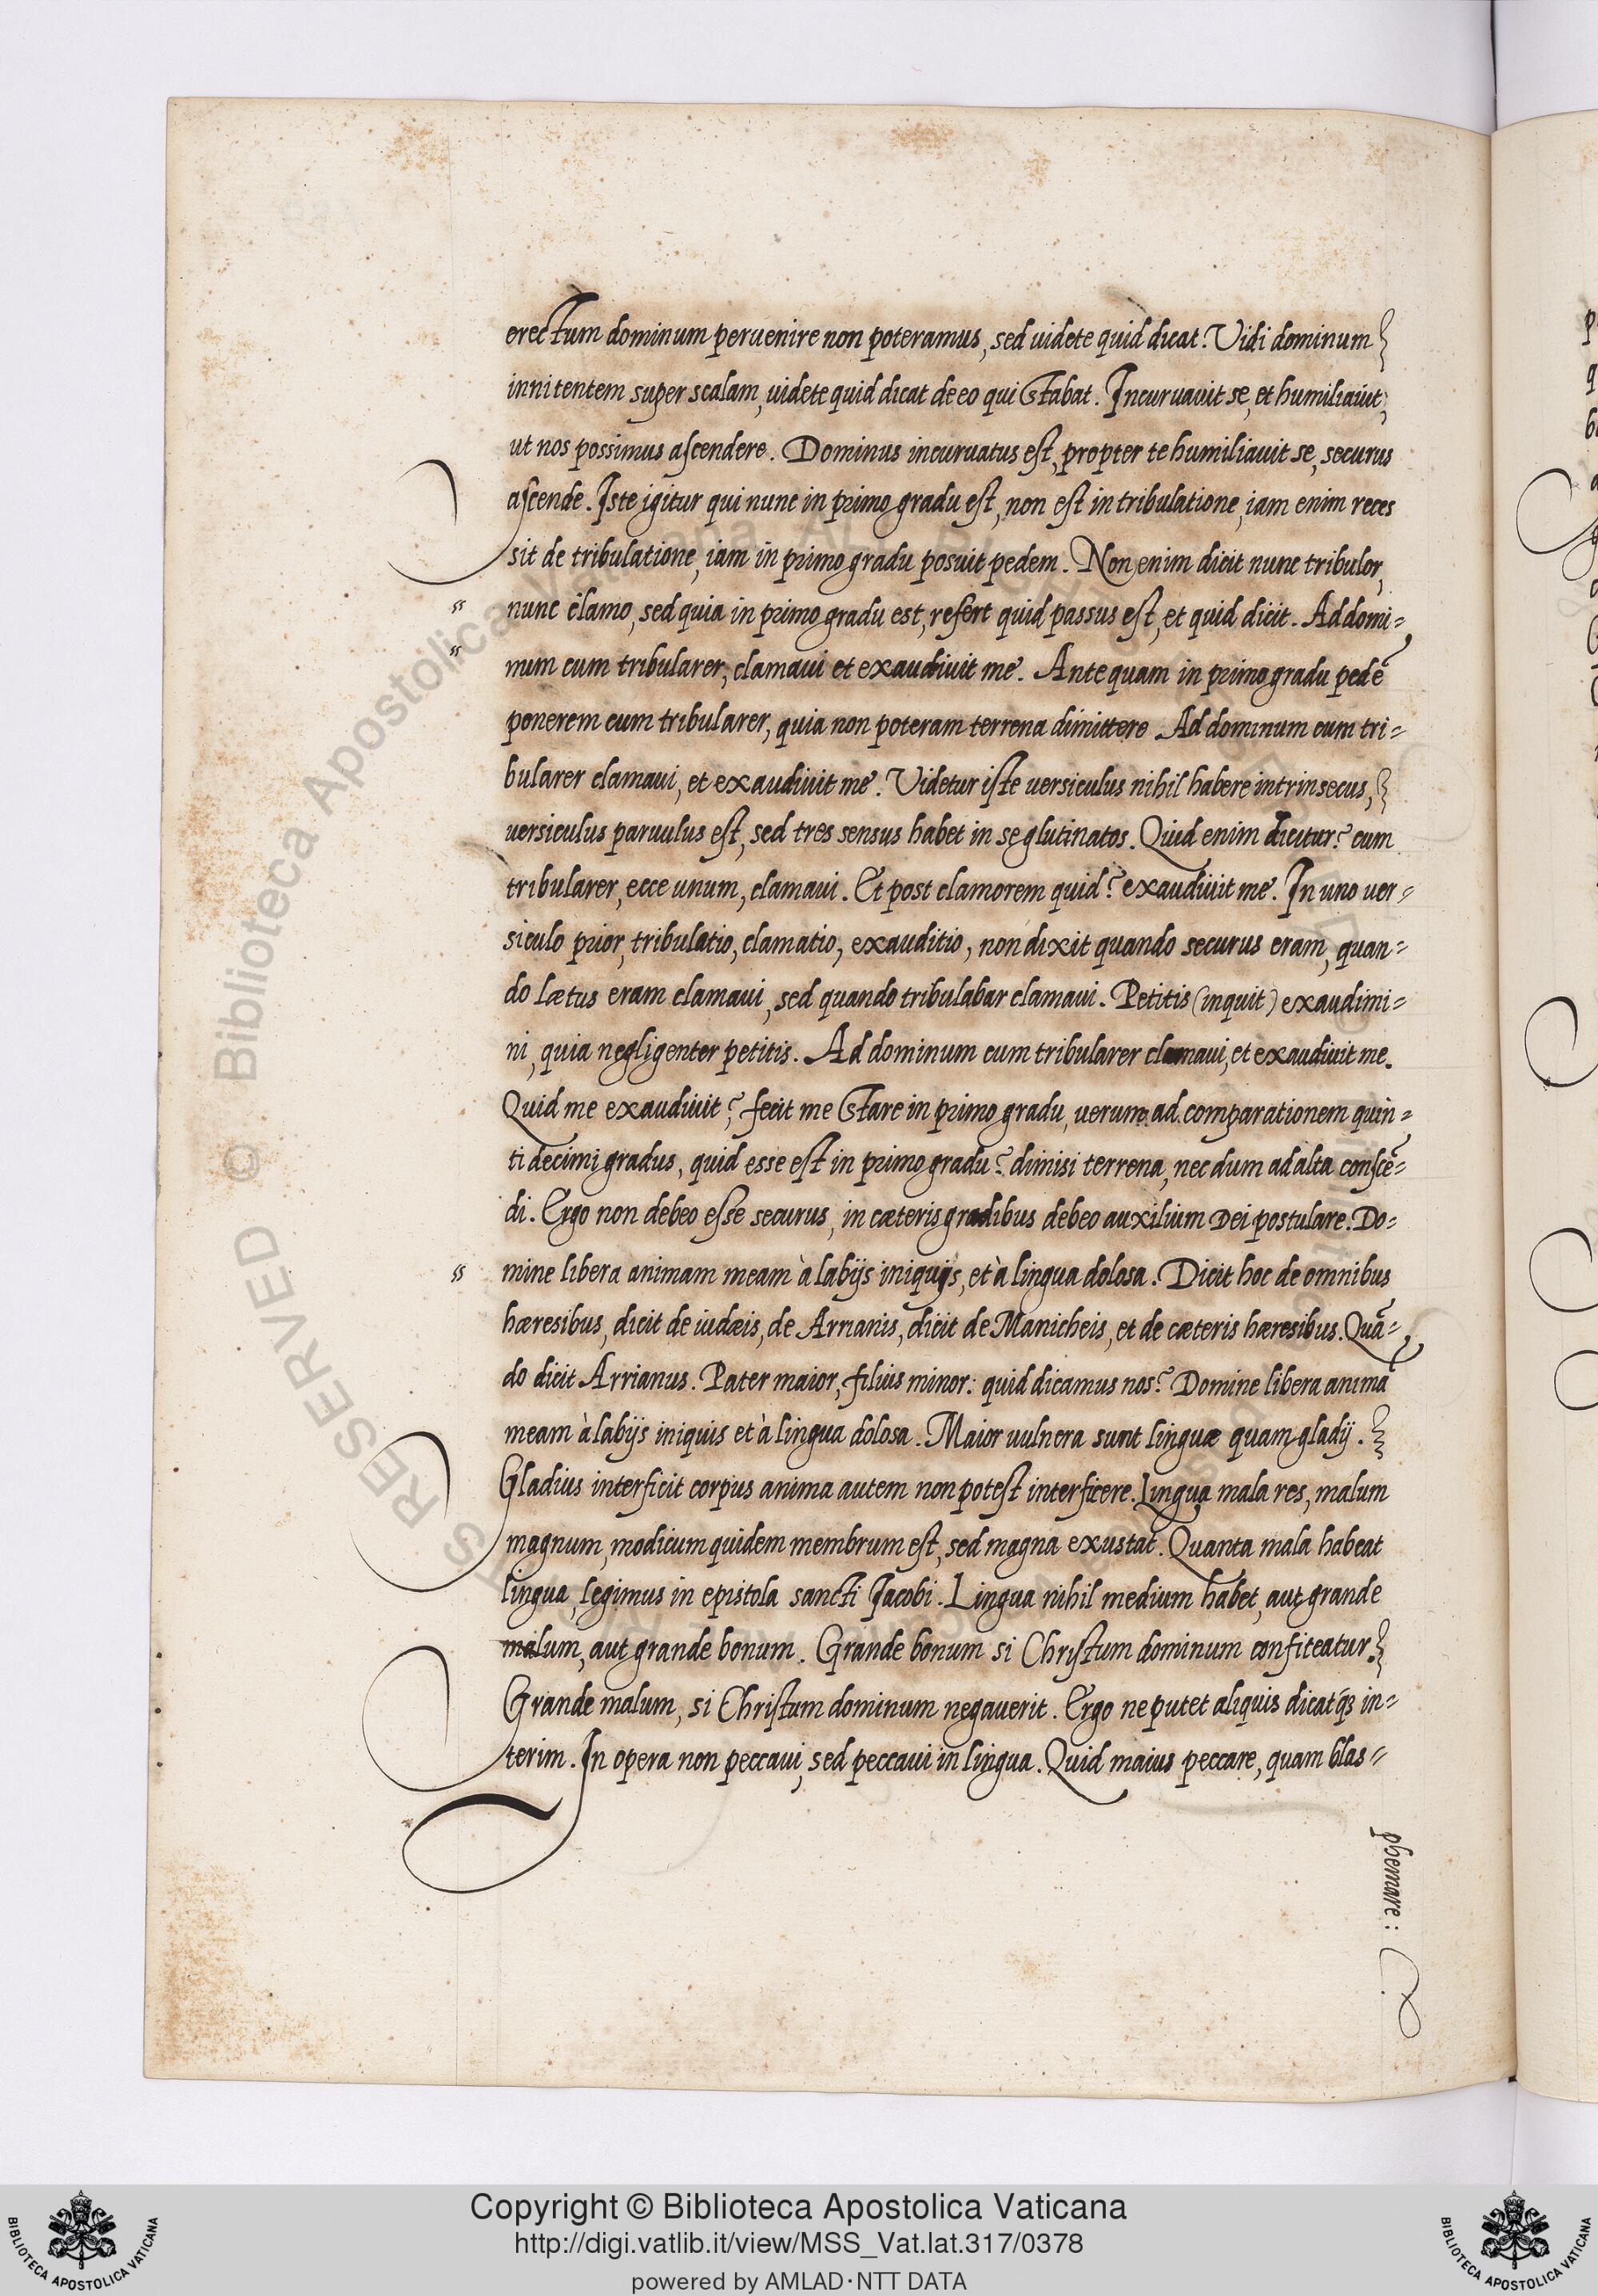 erectum dominum peruenire non poteramus, sed uidete quid dicat. Vidi dominum
innitentem super scalam, uidete quid dicat de eo qui stabat. Incuruauit se, et humiliauit,
ut nos possimus ascendere. Dominus incuruatus est, propter te humiliauit se, securus
ascende. Iste igitur qui nunc in primo gradu est, non est in tribulatione, iam enim reces
sit de tribulatione, iam in primo gradu posuit pedem. Non enim dicit nunc tribulor,
" nunc clamo, sed quia in primo gradu est, refert quid passus est, et quid dicit. Ad domi=
" num cum tribularer, clamaui et exaudiuit me. Ante quam in primo gradu pedē
ponerem cum tribularer, quia non poteram terrena dimittere Ad dominum cum tri=
bularer clamaui, et exaudiuit me. Videtur iste uersiculus nihil habere intrinsecus,
uersiculus paruulus est, sed tres sensus habet in se glutinatos. Quid enim dicitur? cum
tribularer, ecce unum, clamaui. Et post clamorem quid? exaudiuit me. In uno uer=
siculo prior, tribulatio, clamatio, exauditio, non dixit quando securus eram, quan=
do lætus eram clamaui, sed quando tribulabar clamaui. Petitis (inquit) exaudimi=
ni, quia negligenter petitis. Ad dominum cum tribularer clamaui, et exaudiuit me.
Quid me exaudiuit? fecit me stare in primo gradu, uerum ad comparationem quin=
ti decimi gradus, quid esse est in primo gradu? dimisi terrena, nec dum ad alta conscē=
di. Ergo non debeo esse securus, in cæteris gradibus debeo auxilium Dei postulare. Do=
" mine libera animam meam à labijs iniquijs, et à lingua dolosa. Dicit hoc de omnibus
hæresibus, dicit de iudæis, de Arrianis, dicit de Manicheis, et de cæteris hæresibus. Quā=
do dicit Arrianus. Pater maior, filius minor: quid dicamus nos? Domine libera animā
meam à labijs iniquis et à lingua dolosa. Maior uulnera sunt linguæ quam gladij.
Gladius interficit corpus anima autem non potest interficere. Lingua mala res, malum
magnum, modicum quidem membrum est, sed magna exustat. Quanta mala habeat
lingua, legimus in epistola sancti Jacobi. Lingua nihil medium habet, aut grande
malum, aut grande bonum. Grande bonum si Christum dominum confiteatur.
Grande malum, si Christum dominum negauerit. Ergo ne putet aliquis dicatq́ꝫ in=
terim. In opera non peccaui, sed peccaui in lingua. Quid maius peccare, quam blas=
phemare:
© Biblioteca Apostolica Vaticana
Copyright © Biblioteca Apostolica Vaticana
http://digi.vatlib.it/view/MSS_Vat.lat.317/0378
powered by AMLAD·NTT DATA
BIBLIOTECA APOSTOLICA VATICANA
BIBLIOTECA APOSTOLICA VATICANA